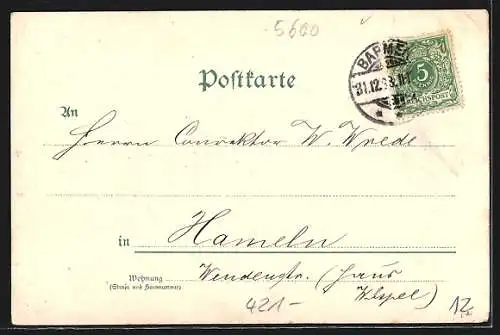 5600
Postkarte
BARMEN
31.12.98.
5
REICHSPOST
An
Herrn Conrektor W. Wrede
in Hameln
Wohnung
(Straße und Hausnummer)
Wendenstr. (Haus
Wespel)
421-
12,